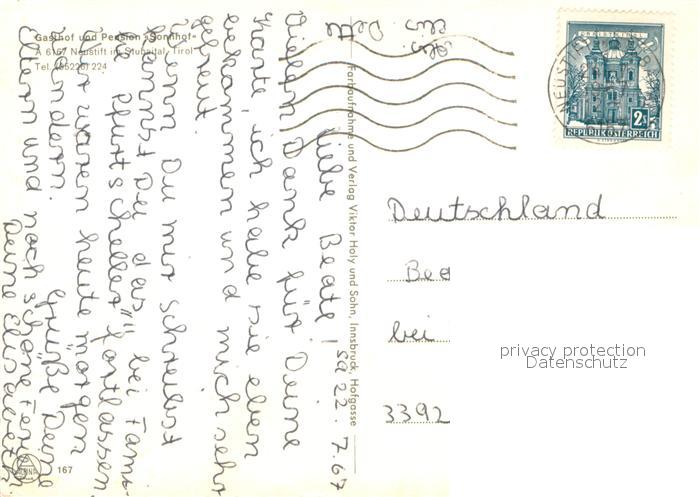 Gasthof und Pension »Sonnhof«
A 6167 Neustift im Stubaital, Tirol
Tel. (05226) 224
Sa 22. 7. 67
Liebe Beate!
Vielen Dank für Deine
Karte, ich habe sie eben
bekommen und mich sehr
gefreut.
Wenn Du mir schreibst
kannst Du das " bei Fami-
lie Pfurtscheller fortlassen
Wir waren heute morgen
wandern.
Grüße Deine
Eltern und noch schöne Ferien
Deine Elisabeth
Farbaufnahme und Verlag Viktor Holy und Sohn, Innsbruck, Hofgasse
167
CHRISTKINDL
2S
REPUBLIK ÖSTERREICH
Deutschland
Bea
bei
3392
privacy protection
Datenschutz